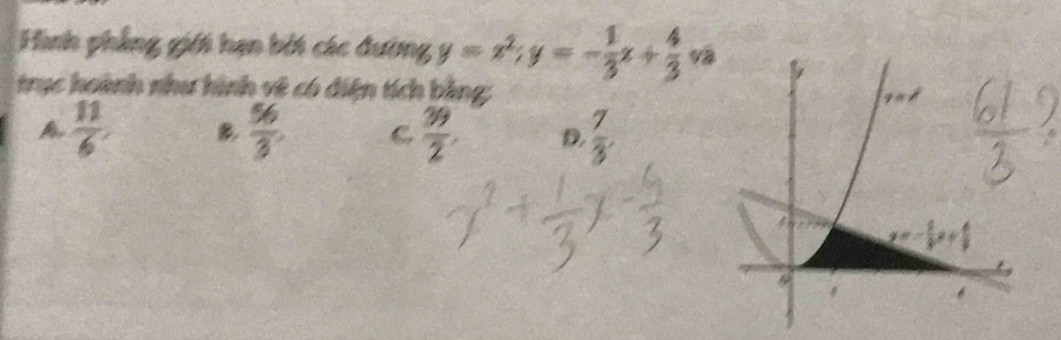 Hình phẳng giới hạn bởi các đường y = x²; y = -\frac{1}{3}x + \frac{4}{3} và
trục hoành như hình vẽ có diện tích bằng:
A. \frac{11}{6}. B. \frac{56}{3}. C. \frac{39}{2}. D. \frac{7}{3}.
\frac{61}{3} ?
x² + \frac{1}{3}x - \frac{4}{3}
y = x²
y = -\frac{1}{3}x + \frac{4}{3}